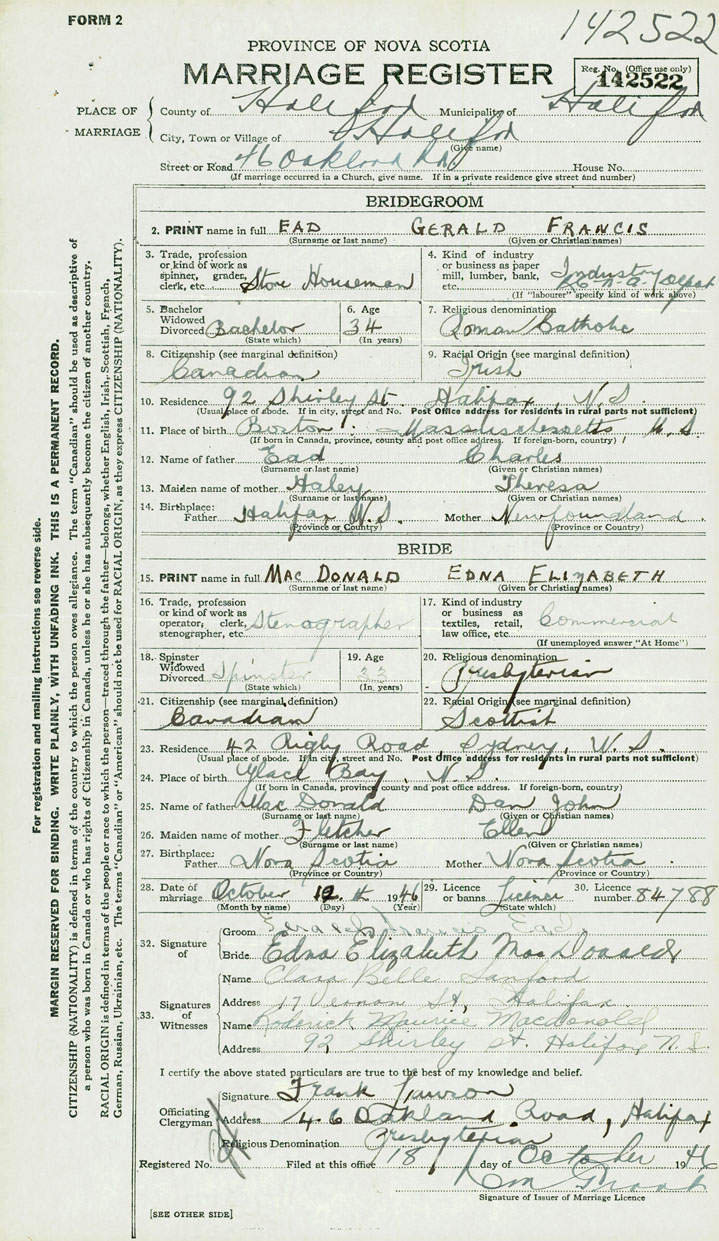 FORM 2
142522
PROVINCE OF NOVA SCOTIA
MARRIAGE REGISTER
Reg. No. (Office use only)
142522
PLACE OF MARRIAGE
County of Halifax Municipality of Halifax
City, Town or Village of Halifax
(Give name)
Street or Road 46 Oakland Rd House No.
(If marriage occurred in a Church, give name. If in a private residence give street and number)
BRIDEGROOM
2. PRINT name in full EAD GERALD FRANCIS
(Surname or last name) (Given or Christian names)
3. Trade, profession or kind of work as spinner, grader, clerk, etc. Store Houseman
4. Kind of industry or business as paper mill, lumber, bank, etc. Industry
(If "labourer" specify kind of work above)
5. Bachelor Widowed Divorced Bachelor
(State which)
6. Age 34
(In years)
7. Religious denomination
Roman Catholic
8. Citizenship (see marginal definition)
Canadian
9. Racial Origin (see marginal definition)
Irish
10. Residence 92 Shirley St. Halifax, N.S.
(Usual place of abode. If in city, street and No. Post Office address for residents in rural parts not sufficient)
11. Place of birth Boston Massachessetts U.S
(If born in Canada, province, county and post office address. If foreign-born, country)
12. Name of father Ead Charles
(Surname or last name) (Given or Christian names)
13. Maiden name of mother Haley Theresa
(Surname or last name) (Given or Christian names)
14. Birthplace: Father Halifax N.S. Mother Newfoundland.
(Province or Country) (Province or Country)
BRIDE
15. PRINT name in full MAC DONALD EDNA ELIZABETH
(Surname or last name) (Given or Christian names)
16. Trade, profession or kind of work as operator, clerk, stenographer, etc. Stenographer
17. Kind of industry or business as textiles, retail, law office, etc. Commercial
(If unemployed answer "At Home")
18. Spinster Widowed Divorced Spinster
(State which)
19. Age 33
(In years)
20. Religious denomination
Presbyterian
21. Citizenship (see marginal definition)
Canadian
22. Racial Origin (see marginal definition)
Scottish
23. Residence 42 Rigby Road, Sydney, N.S.
(Usual place of abode. If in city, street and No. Post Office address for residents in rural parts not sufficient)
24. Place of birth Glace Bay, N.S.
(If born in Canada, province county and post office address. If foreign-born, country)
25. Name of father Mac Donald Dan John
(Surname or last name) (Given or Christian names)
26. Maiden name of mother Fletcher Ellen
(Surname or last name) (Given or Christian names)
27. Birthplace: Father Nova Scotia Mother Nova Scotia.
(Province or Country) (Province or Country)
28. Date of marriage October 12th 1946
(Month by name) (Day) (Year)
29. Licence or banns Licence
(State which)
30. Licence number 84788
32. Signature of
Groom Gerald Francis Ead
Bride Edna Elizabeth MacDonald
33. Signatures of Witnesses
Name Clara Belle Sanford
Address 17 Vernon St, Halifax
Name Roderick Maurice Macdonald
Address 92 Shirley St. Halifax N.S.
I certify the above stated particulars are true to the best of my knowledge and belief.
Officiating Clergyman
Signature Frank Lawson
Address 46 Oakland Road, Halifax
Religious Denomination Presbyterian
Registered No. Filed at this office 18 day of October 1946
Signature of Issuer of Marriage Licence
[SEE OTHER SIDE]
For registration and mailing instructions see reverse side.
MARGIN RESERVED FOR BINDING. WRITE PLAINLY, WITH UNFADING INK. THIS IS A PERMANENT RECORD.
CITIZENSHIP (NATIONALITY) is defined in terms of the country to which the person owes allegiance. The term "Canadian" should be used as descriptive of
a person who was born in Canada or who has rights of Citizenship in Canada, unless he or she has subsequently become the citizen of another country.
RACIAL ORIGIN is defined in terms of the people or race to which the person—traced through the father—belongs, whether English, Irish, Scottish, French,
German, Russian, Ukrainian, etc. The terms "Canadian" or "American" should not be used for RACIAL ORIGIN, as they express CITIZENSHIP (NATIONALITY).